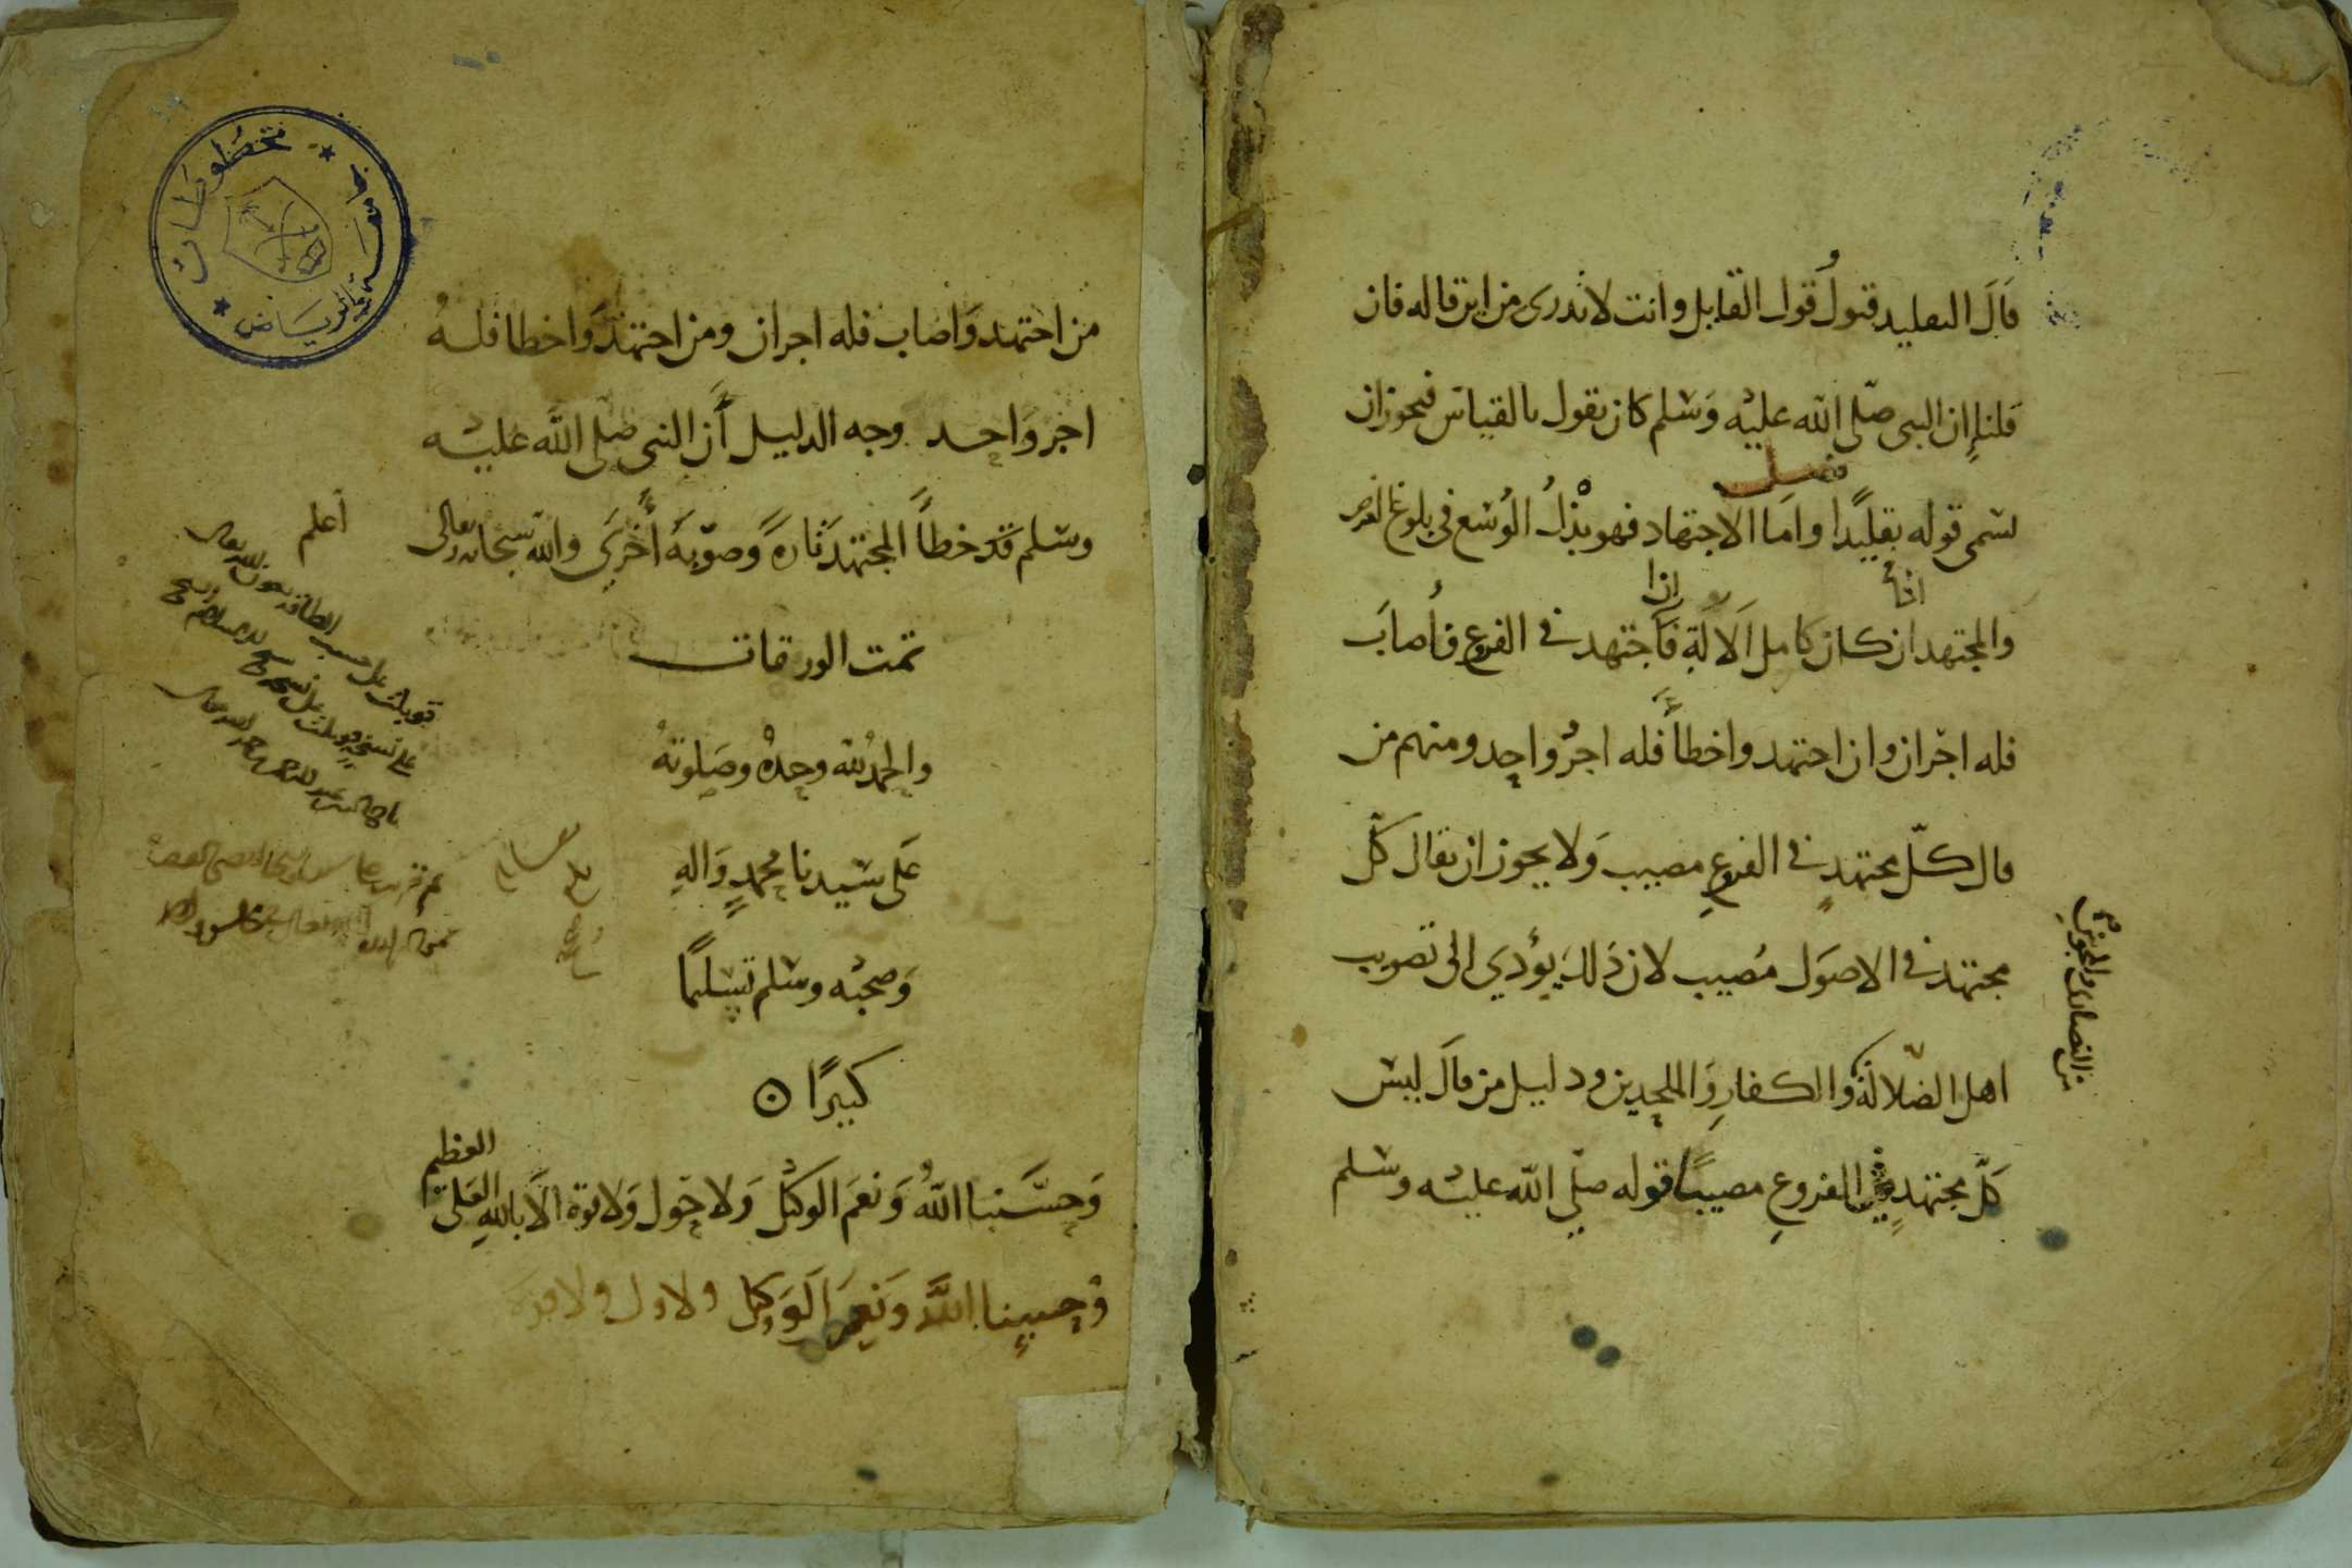 قَالَ التقليد قبولُ قول القايل وانت لا تدرى من اين قاله فان
قلنا إن النبي صلى الله عليه وسلم كان يقول بالقياس فيجوز ان
فصل
يسمى قوله تقليدًا واما الاجتهاد فهو بذلُ الوُسْع في بلوغ الغرض
والمجتهد ان كان كامل الآلة فاجتهد في الفروع فأصابَ
إذا
فله اجران وان اجتهد واخطأ فله اجرٌ واحد ومنهم من
قال كلّ مجتهدٍ في الفروعِ مصيب ولا يجوز ان يقال كل
مجتهد في الاصول مُصيب لان ذلك يؤدي الى تصويب
اهل الضلالة والكفارِ والملحدين ودليل من قال ليس
من النصارى والمجوس
كلّ مجتهدٍ في الفروعِ مصيبًا قوله صلى الله عليه وسلم
مخطوطات
جامعة الرياض
من اجتهد واصاب فله اجران ومن اجتهد واخطا فله
اجر واحد وجه الدليل أن النبي صلى الله عليه
وسلم قد خطأ المجتهد تارةً وصوّبه أُخرى والله سبحانه وتعالى
أعلم
تمت الورقات
والحمد لله وحده وصلوته
على سيدنا محمدٍ وآلهِ
وصحبه وسلم تسليمًا
كبيرًا
وحسبنا اللهُ ونعمَ الوكيل ولا حول ولا قوة الا باللهِ العلى
العظيم
وحسبنا الله ونعم الوكيل ولا ول ولا قوة